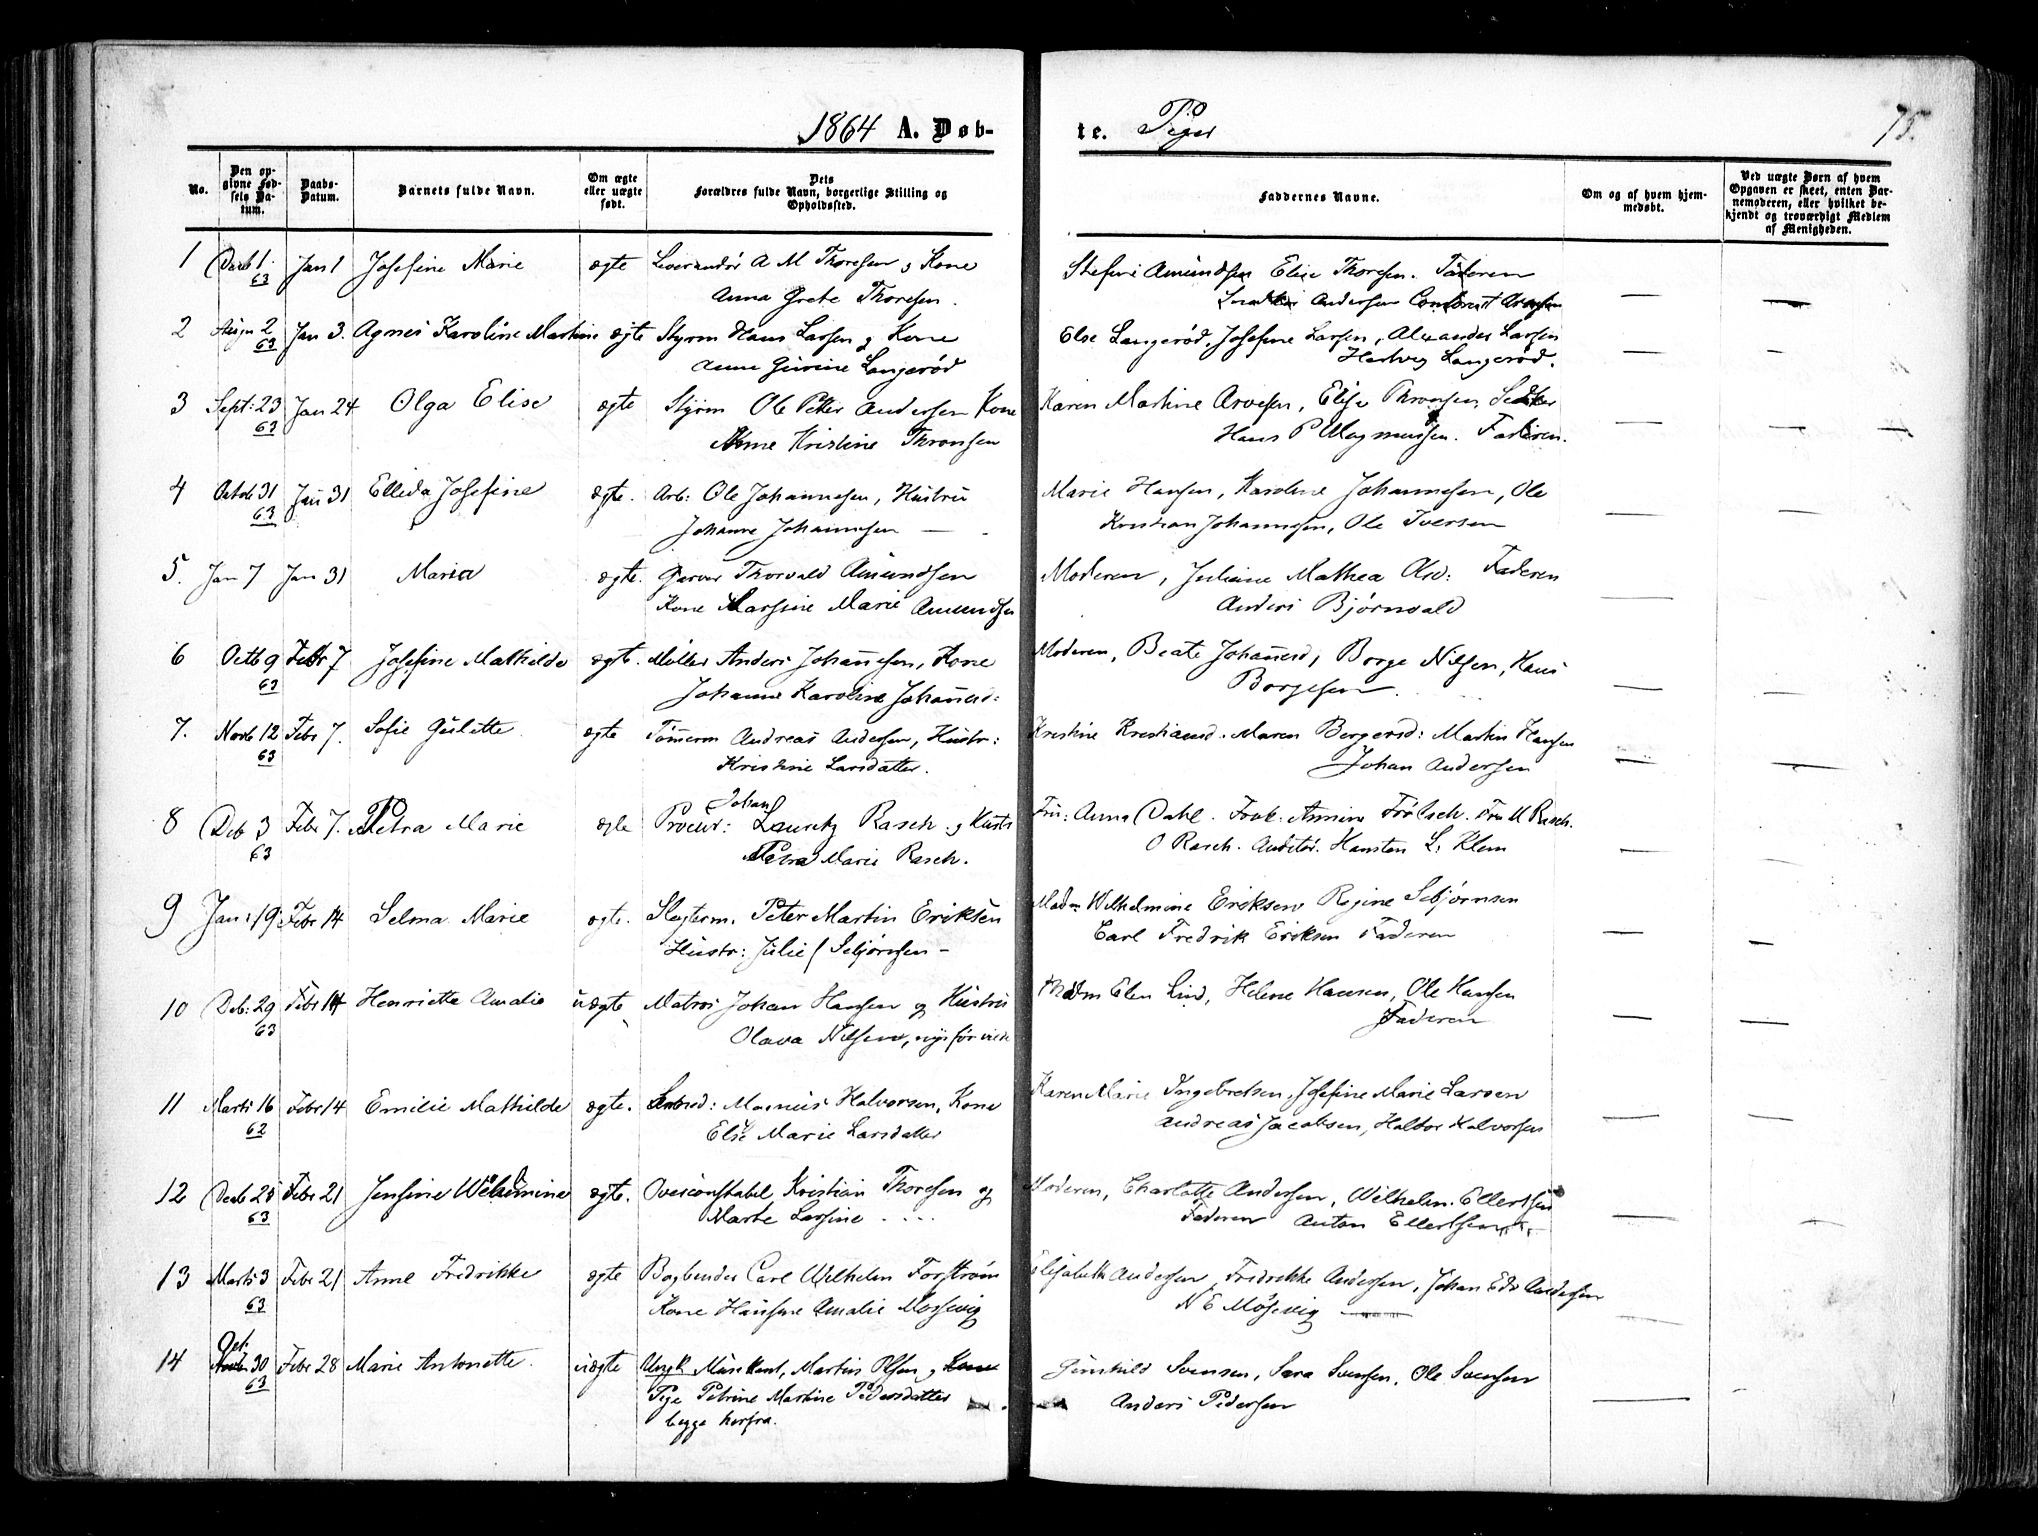 1864 A. Døb-
te. Piger
75.
No.
Den op-
givne Fød-
sels Da-
tum.
Daabs-
Datum.
Barnets fulde Navn.
Om ægte
eller uægte
født.
Dets
Forældres fulde Navn, borgerlige Stilling og
Opholdssted.
Faddernes Navne.
Om og af hvem hjem-
medøbt.
Ved uægte Børn af hvem
Opgaven er skeet, enten Bar-
nemoderen, eller hvilket be-
kjendt og troværdigt Medlem
af Menigheden.
1 Decb 1 Jan 1 Josefine Marie ægte Leverandør A M Thoresen & Kone Stefine Amundsen Elise Thoresen. Faderen
63 Anna Grete Thoresen. Andersen
2 Augu 2 Jan 3. Agnes Karoline Martine ægte Styrm Hans Larsen & Kone Else Langerød, Josefine Larsen, Alexander Larsen
63 Langerød Hartvig Langerød.
3 Sept: 23 Jan 24 Olga Elise ægte Styrm Ole Petter Andersen Kone Karen Martine Arvesen, Elise Thronsen,
63 Anne Kristine Thronsen Hans P Magnussen. Faderen.
4 Octob 31 Jan 31 Ellida Josefine ægte. Arb: Ole Johannesen, Hustru Marie Hansen, Karoline Johannesen, Ole
63 Johanne Johannesen — Kristian Johannesen, Ole Iversen
5. Jan 7 Jan 31 Maria ægte. Garver Thorvald Amundsen Moderen, Juliane Mathea Faderen
Kone Marie Amundsen Anders Bjørnvald
6 Octb 9 Febr 7 Josefine Mathilde ægte. Møller Anders Johannesen, Kone Moderen, Beate Johannesd, Borge Nilsen, Hans
63 Johanne Karoline Johannesd: Borgesen
7. Novb 12 Febr 7. Sofie Gulette ægte Tømerm Andreas Andersen, Hustr: Kristine Kristiansd. Maren Borgersd: Martin Hansen
63 Kristine Larsdatter. Johan Andersen
8 Deb 3 Febr 7. Petra Marie ægte Procur: Johan Lauritz Rasch & Hust: Fru: Anna Dahl. Frøk: Fru M Rasch.
63 Petra Marie Rasch. O Rasch. Auditør. Hansten L. Klem
9 Jan: 19 Febr 14 Selma Marie ægte. Slagterm. Peter Martin Eriksen Madm Wilhelmine Eriksen Regine Sebjørnsen
Hustr: Julie Sebjørnsen - Carl Fredrik Eriksen Faderen
10 Deb: 29 Febr 14 Henriette Amalie uægte Matros Johan Hansen og Hustru Madm Elen Lind, Helene Hansen, Ole Hansen
63 Olava Nilsen, Faderen
11 Marts 16 Febr 14 Emilie Mathilde ægte. Magnus Halvorsen, Kone Karen Marie Ingebretsen, Josefine Marie Larsen
62 Else Marie Larsdatter Andreas Jacobsen, Halvor Halvorsen
12 Decb 25 Febr 21 Jensine Wilhelmine ægte. Overconstabel Kristian Thoresen og Moderen, Charlotte Andersen, Wilhelm. Ellertsen
63 Marte Larsine Faderen Anton Ellertsen
13 Marts 3 Febr 21 Anne Fredrikke ægte Bogbinder Carl Wilhelm Forstrøm Elisabeth Andersen, Fredrikke Andersen, Johan Edv Andersen
63 Kone Hansine Amalie Mossevig N E Mosevig
14 Oct: 30 Febr 28 Marie Antonette. uægte Ungk Musikant, Martin Olsen, Gunhild Svensen, Sara Svensen, Ole Svensen
63 Pige Petrine Martine Pedersdatter Anders Pedersen
begge herfra.